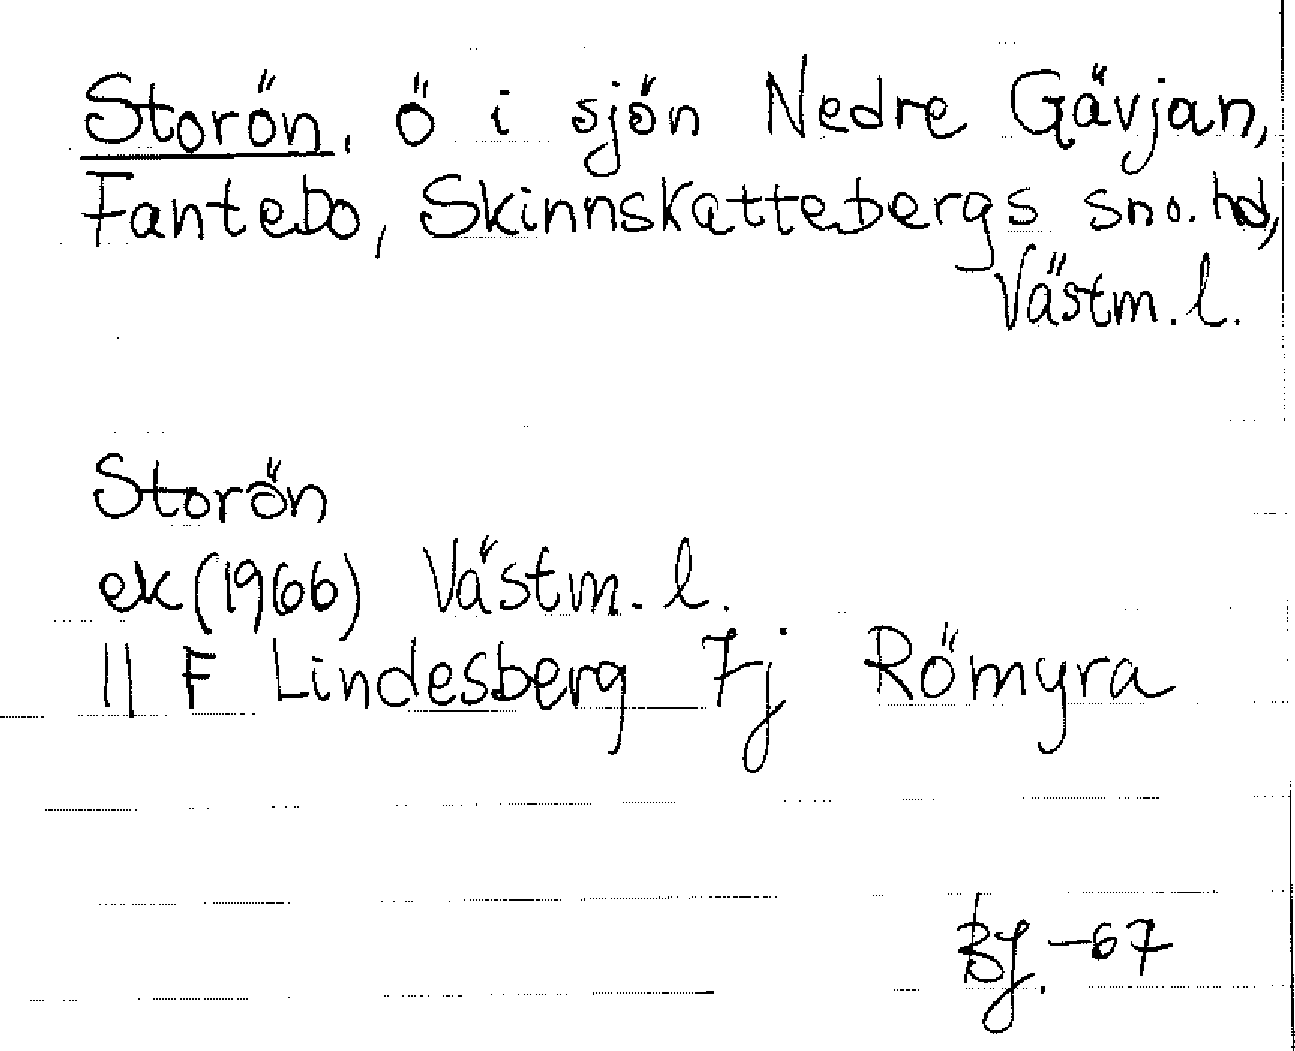 Storön, ö i sjön Nedre Gävjan,
Fantebo, Skinnskattebergs sno. hd,
Västm. l.
Storön
ek (1966) Västm. l.
11 F Lindesberg 7j Römyra
BJ. -67